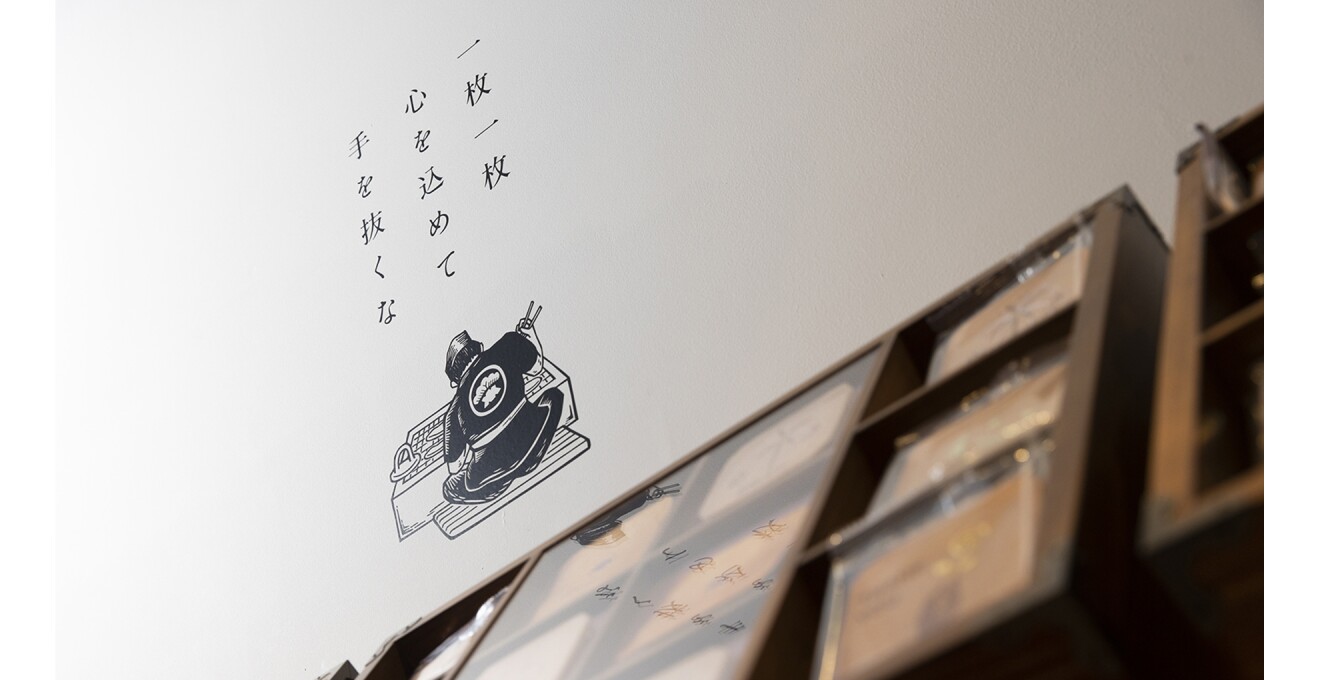 一枚一枚
心を込めて
手を抜くな